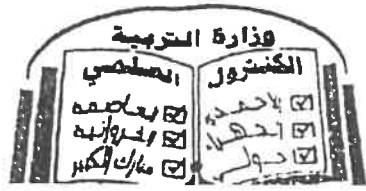 وزارة التربية
الكنترول العلمي
الاحمدي
الجهراء
حولي
العاصمه
الفروانيه
مبارك الكبير